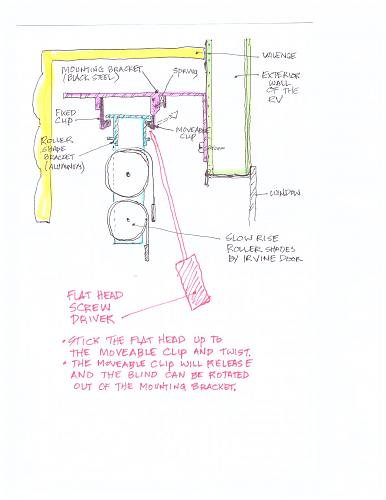 VALENCE
MOUNTING BRACKET
(BLACK STEEL)
SPRING
EXTERIOR
WALL
OF THE
RV
FIXED
CLIP
MOVEABLE
CLIP
ROLLER
SHADE
BRACKET
(ALUMINUM)
WINDOW
SLOW RISE
ROLLER SHADES
BY IRVINE DOOR
FLAT HEAD
SCREW
DRIVER
• STICK THE FLAT HEAD UP TO
THE MOVEABLE CLIP AND TWIST.
• THE MOVEABLE CLIP WILL RELEASE
AND THE BLIND CAN BE ROTATED
OUT OF THE MOUNTING BRACKET.